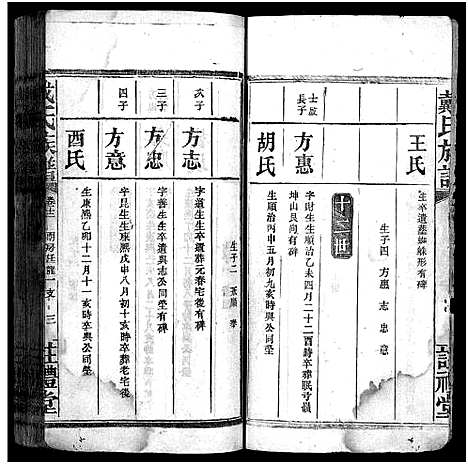 戴氏族譜
王氏
生卒遺葬蜘蛛形有碑
生子四 方惠 志 忠 意
十二世
士啟長子
方惠
字財生生順治乙未四月二十二酉時卒葬眠弓嶺
坤山艮向有碑
胡氏
生順治丙申五月初九亥時與公同塋
次子
方志
字道生生卒遺葬元春宅後有碑
生子二
三子
方忠
字善生生卒遺與志公同塋
四子
方意
字昆生生康熙戊申八月初十亥時卒葬老宅後
有碑
酉氏
生康熙乙卯十二月十一亥時卒與公同塋
戴氏族譜
三
註禮堂